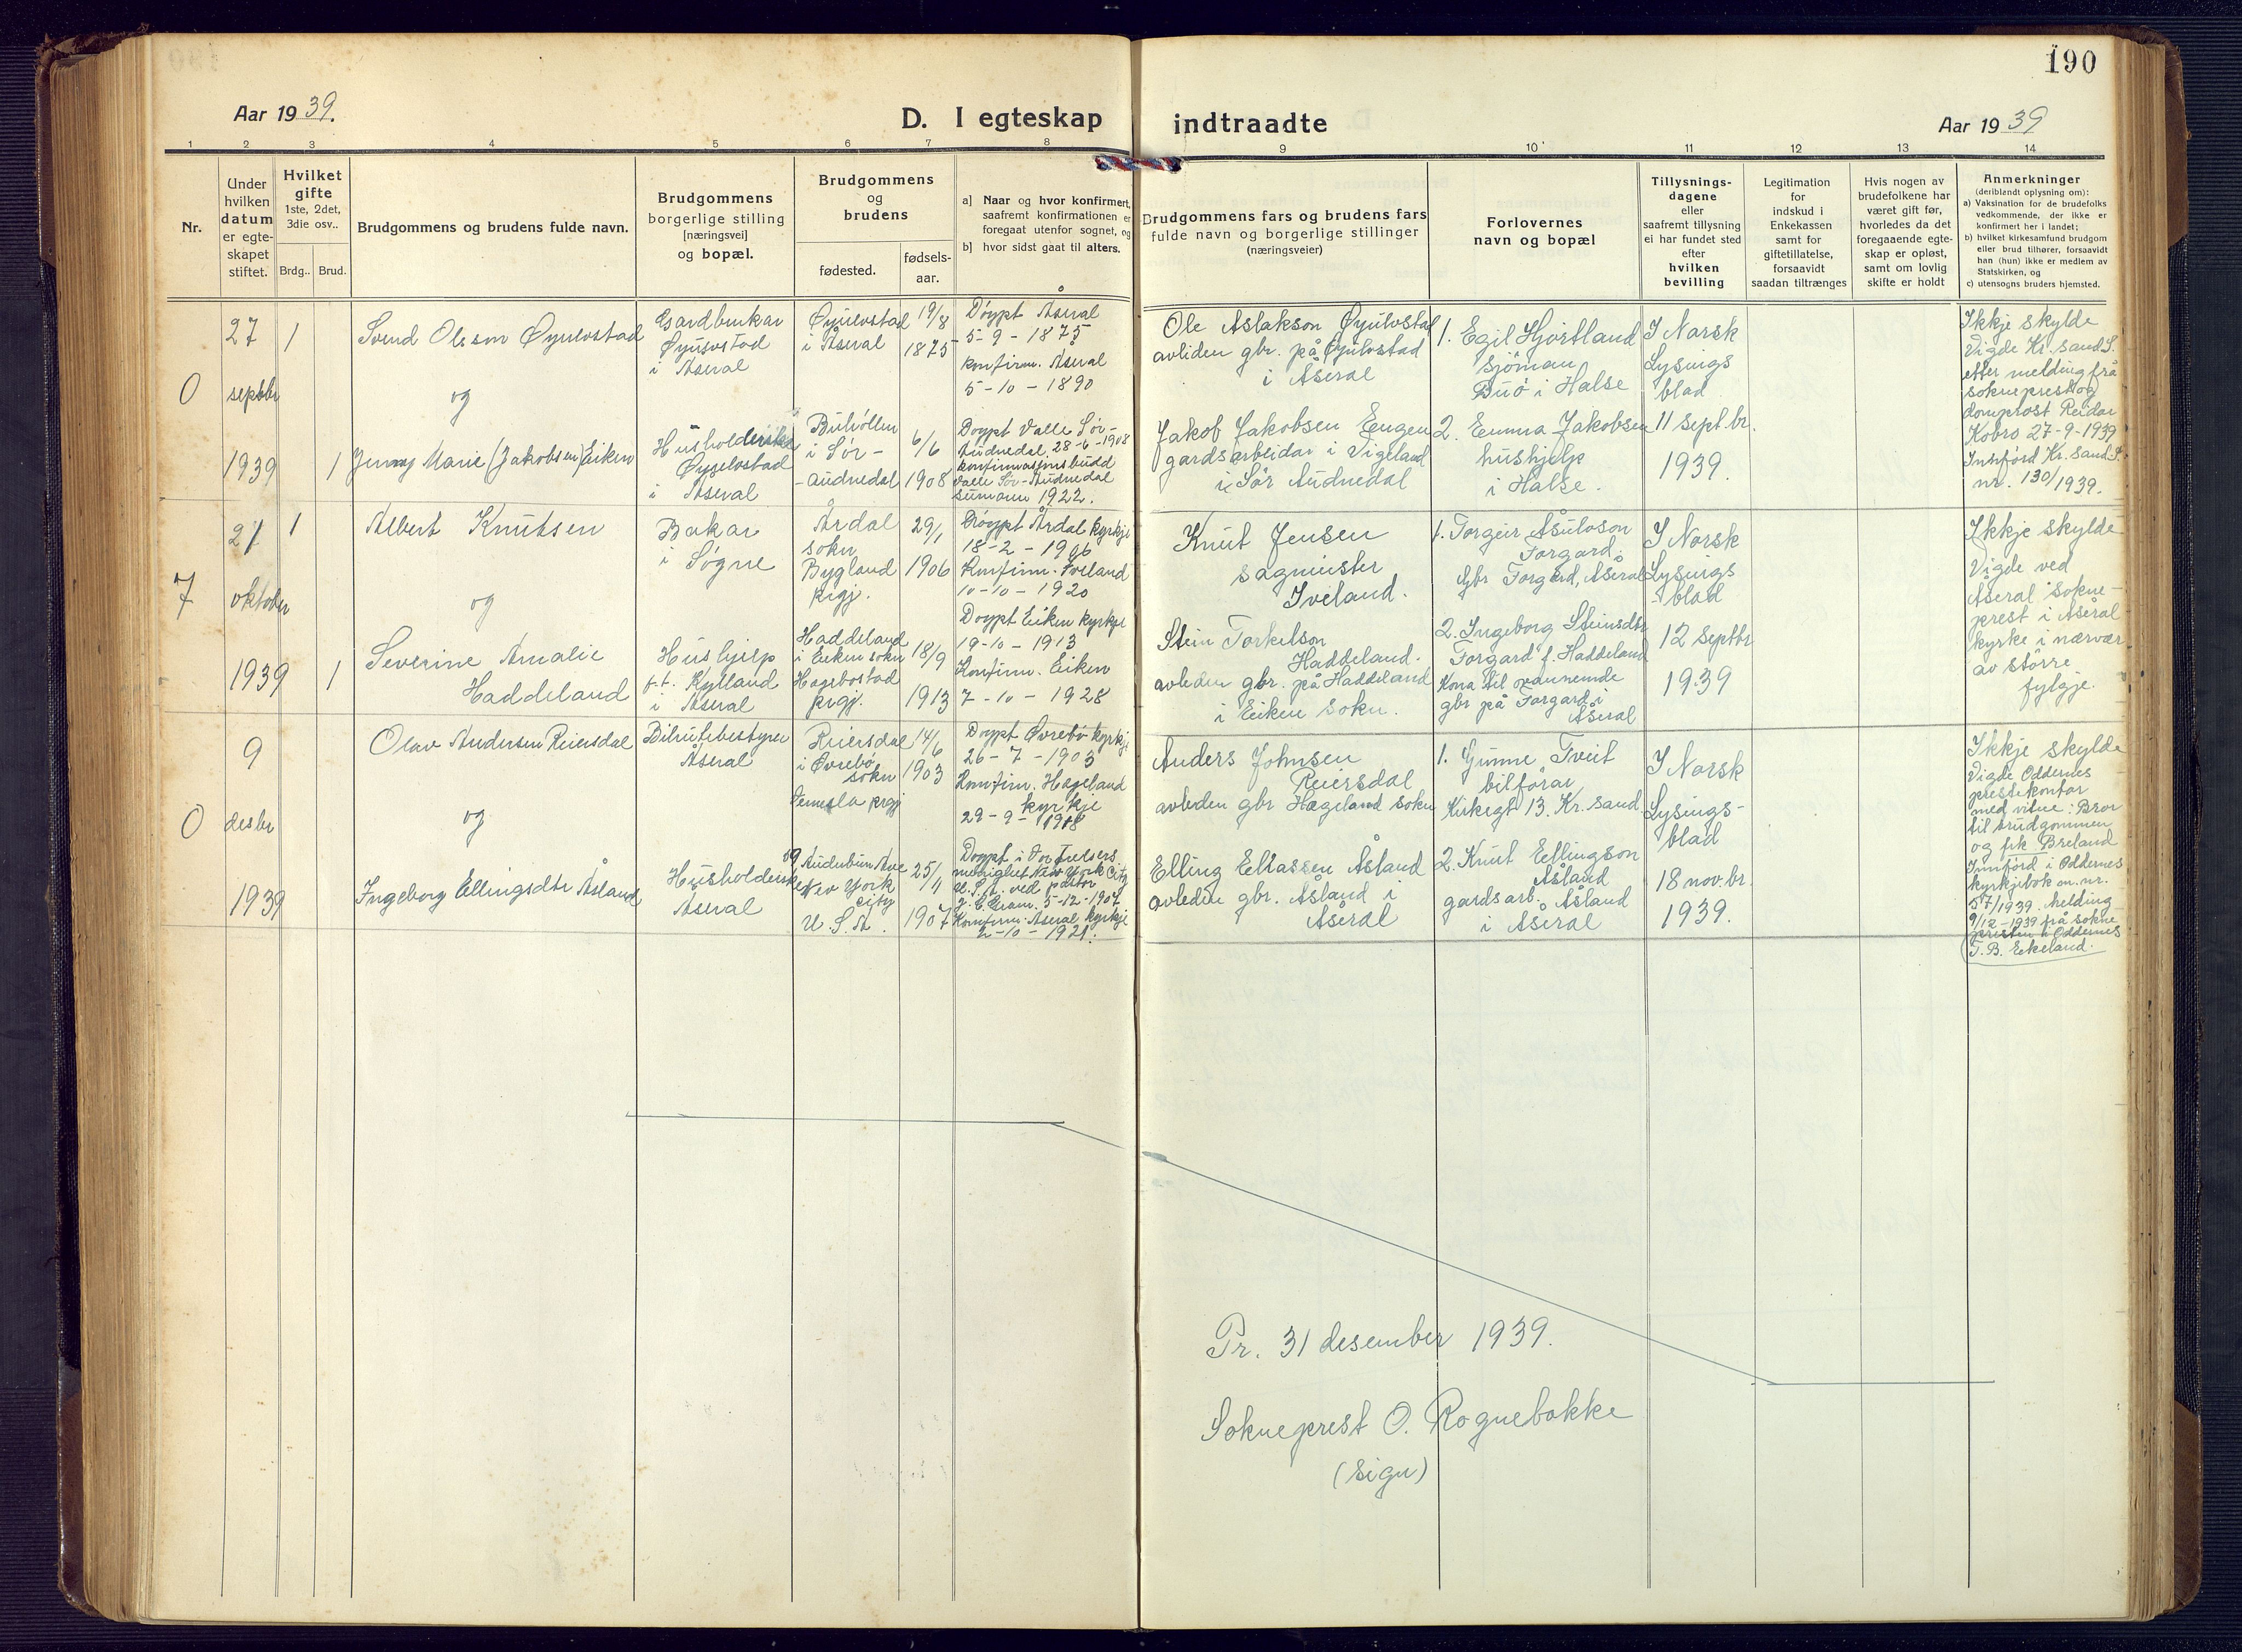 190
Aar 1939.
D. I egteskap
indtraadte
Aar 1939
1 2 3 4 5 6 7 8 9 10 11 12 13 14
Nr.
Under
hvilken
datum
er egte-
skapet
stiftet.
Hvilket
gifte
1ste, 2det,
3die osv..
Brdg..
Brud.
Brudgommens og brudens fulde navn.
Brudgommens
borgerlige stilling
[næringsvei]
og bopæl.
Brudgommens
og
brudens
fødested.
fødsels-
aar.
a] Naar og hvor konfirmert,
saafremt konfirmationen er
foregaat utenfor sognet, og
b] hvor sidst gaat til alters.
Brudgommens fars og brudens fars
fulde navn og borgerlige stillinger
(næringsveier)
Forlovernes
navn og bopæl
Tillysnings-
dagene
eller
saafremt tillysning
ei har fundet sted
efter
hvilken
bevilling
Legitimation
for
indskud i
Enkekassen
samt for
giftetillatelse,
forsaavidt
saadan tiltrænges
Hvis nogen av
brudefolkene har
været gift før,
hvorledes da det
foregaaende egte-
skap er opløst,
samt om lovlig
skifte er holdt
Anmerkninger
(deriblandt oplysning om):
a) Vaksination for de brudefolks
vedkommende, der ikke er
konfirmert her i landet;
b) hvilket kirkesamfund brudgom
eller brud tilhører, forsaavidt
han (hun) ikke er medlem av
Statskirken, og
c) utensogns bruders hjemsted.
0
27
septbr
1939
1
1
Svend Olsson Øyulvstad
og
Jenny Marie (Jakobsen) Eiken
Gardbrukar
Øyulvstad
i Åseral
Husholderske
Øyulvstad
i Åseral
Øyulvstad
i Åseral
19/8
1875
i Sør-
-audnedal
6/6
1908
Døypt Åseral
5-9-1875
konfirm. Åseral
5-10-1890
Døypt Valle Sør-
Audnedal, 28-6-1908
Valle Sør-Audnedal
1922.
Ole Aslakson Øyulvstad
avliden gbr. på Øyulvstad
i Åseral
Jakob Jakobsen Eugen
gardsarbeidar i Vigeland
i Sør Audnedal
1. Egil Hjortland
sjömann
Buö i Halse
2. Emma Jakobsen
hushjelp
i Halse.
I Norsk
Lysings
blad
11 sept.br.
1939.
Ikkje skylde
Vigde Kr. sand S.
etter melding frå
sokneprest og
domprost Reidar
Kobro 27-9-1939
Innförd Kr. sand S.
nr. 130/1939.
7
21
oktober
1939
1
1
Albert Knutsen
og
Severine Amalie
Haddeland
Bakar
i Søgne
Hushjelp
p.t. Kylland
i Åseral
Årdal
sokn
Bygland
prgj.
29/1
1906
Haddeland
i Eiken sokn
Hægebostad
prgj.
18/9
1913
Døypt Årdal kyrkje
18-2-1906
Konfirm. Iveland
10-10-1920
Døypt Eiken kyrkje
19-10-1913
Konfirm. Eiken
7-10-1928
Knut Jensen
sagmeister
Iveland.
Stein Torkelson
Haddeland.
avleden gbr. på Haddeland
i Eiken sokn.
1. Torgeir Åsulvson
Forgard.
Gbr Forgard, Åseral
2. Ingeborg Steinsdtr
Forgard f. Haddeland
Kona til ovannemde
gbr på Forgard i
Åseral
I Norsk
Lysings
-blad
12 septbr
1939
Ikkje skylde
Vigde ved
Åseral sokne-
prest i Åseral
kyrkje i nærvær
av större
fylgje.
0
9
desbr
1939
Olav Andersen Reiersdal
og
Ingeborg Ellingsdtr Åsland
Bilrutebestyrer
Åseral
Husholderske
Åseral
Reiersdal
i Øvrebö
sokn
Vennesla prgj
14/6
1903
New York
City
U.S.A.
25/4
1907
Døypt Øvrebö kyrkje
26-7-1903
Konfirm. Hægeland
kyrkje
29-9-1918
Døypt i Vor Frelsers
menighet New York City
U.S.A. ved pastor
5-12-1907
Konfirm. Åseral kyrkje
2-10-1921.
Anders Johnsen
Reiersdal
avleden gbr Hægeland sokn
Elling Eliassen Åsland
avleden gbr. Åsland i
Åseral
1. Gunne Tveit
bilförar
Kirkegt 13. Kr. sand
2. Knut Ellingson
Åsland
gardsarb. Åsland
i Åseral
I Norsk
Lysings-
blad
18 nov.br.
1939.
Ikkje skylde
Vigde Oddernes
prestekontor
med vitne: Bror
til brudgommen
og frk Breland
Innförd i Oddernes
kyrkjebok m. nr.
57/1939. Melding
9/12-1939 frå sokne
presten i Oddernes
T.B. Eikeland.
Pr. 31 desember 1939.
Sokneprest O. Rognebakke
(sign)